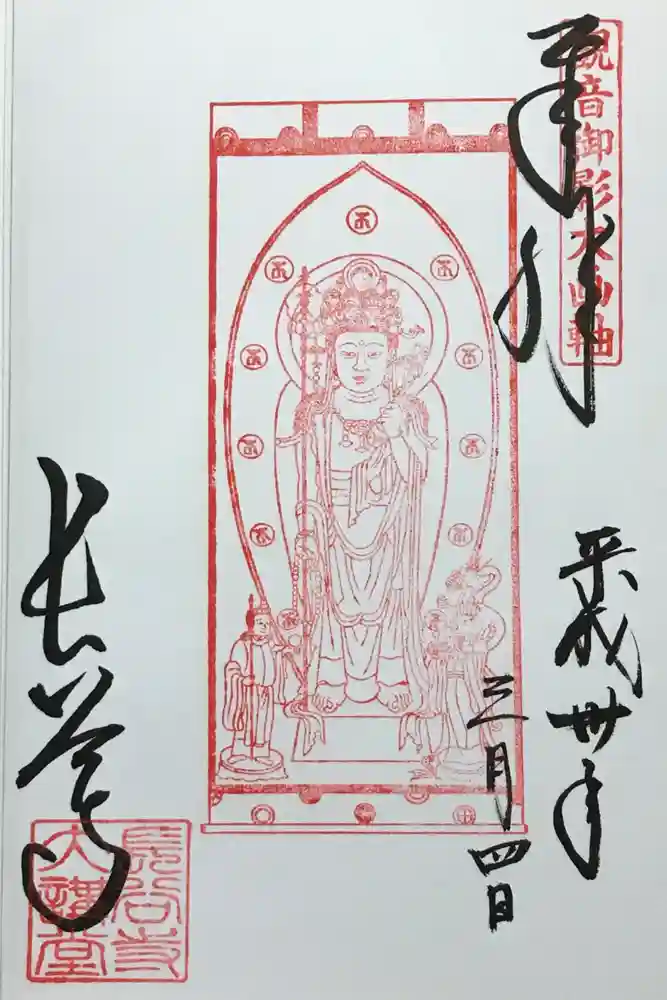 観音御影大画軸
奉拝
平成卅年
三月四日
長谷寺
長谷寺
大講堂